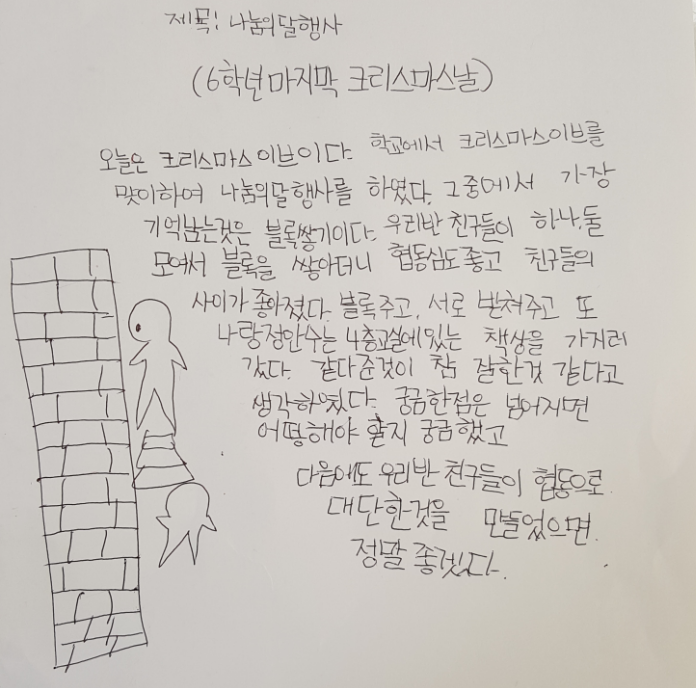 제목: 나눔의달행사
(6학년마지막 크리스마스날)
오늘은 크리스마스이브이다. 학교에서 크리스마스이브를
맞이하여 나눔의달행사를 하였다. 그중에서 가장
기억남는것은 블록쌓기이다. 우리반 친구들이 하나, 둘
모여서 블록을 쌓아더니 협동심도좋고 친구들의
사이가 좋아졌다. 블록주고, 서로 받쳐주고 또
나랑정안수는 4층교실에있는 책상을 가지러
갔다. 같다준것이 참 잘한것 같다고
생각하였다. 궁금한점은 넘어지면
어떻해야 할지 궁금했고
다음에도 우리반 친구들이 협동으로
대단한것을 만들었으면
정말 좋겠다.